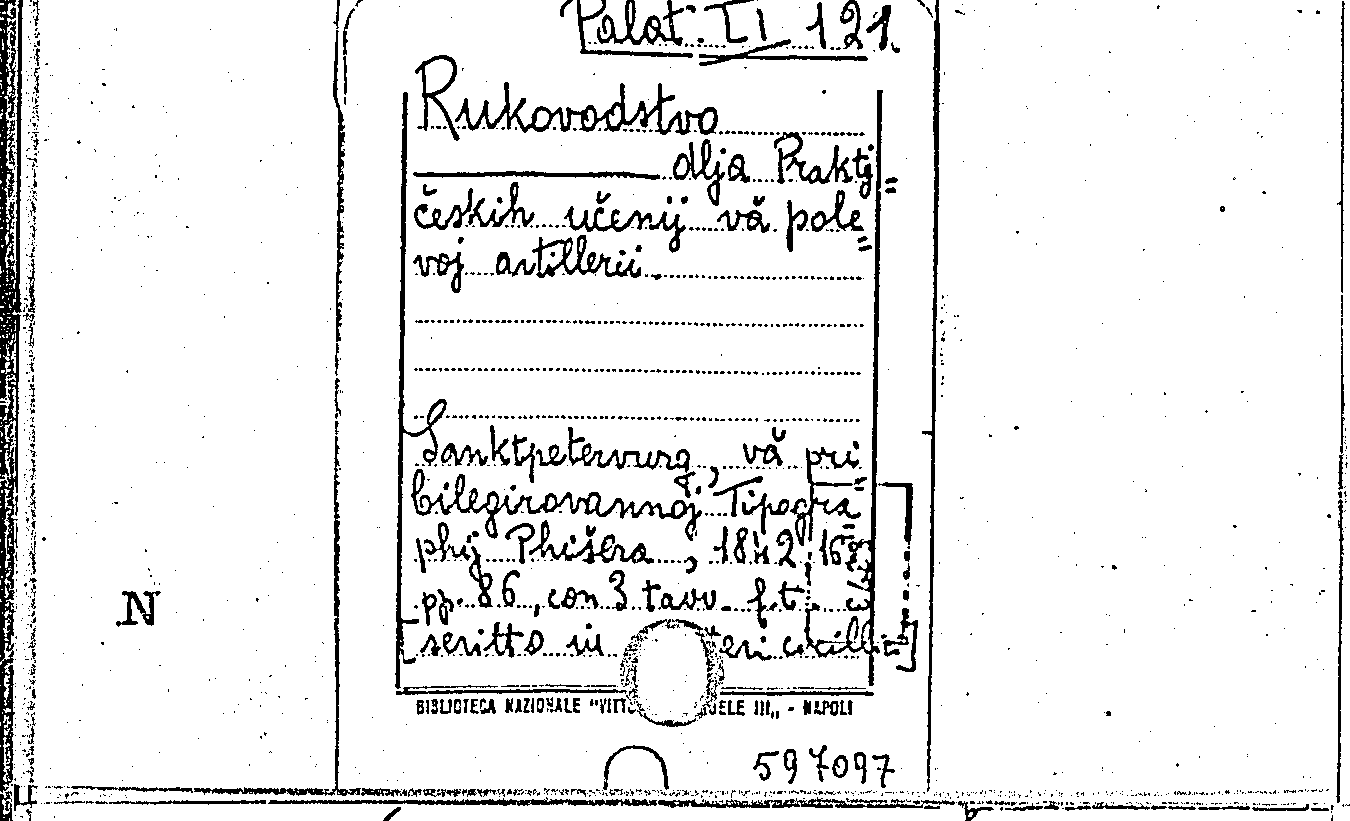 Palat. LI 121.
Rukovodstvo
dlja Praktj=
českih učenij vă pole=
voj artillerii.
Sanktpetervurg, vă pri=
bilegirovannoj Tipogra=
phij Phišera, 1842, 16°
pp. 86, con 3 tavv. f.t.
[scritto in
N
BIBLIOTECA NAZIONALE "VITTO ELE III,, - NAPOLI
597097